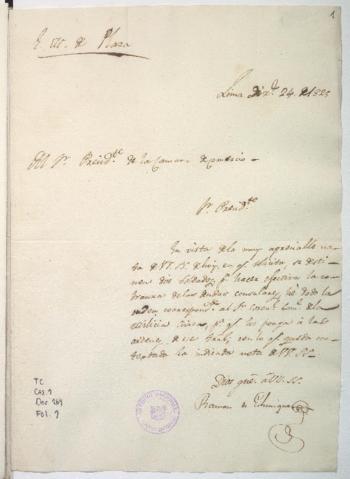 1
E. M. de Plaza
Lima Dizᵉ. 24 de 1825
Al Sʳ. Presidᵗᵉ de la Camara de Comercio
Sʳ. Presidᵗᵉ
En vista de la muy apreciable no-
ta de V. S. de hoy, en qᵉ solicita, se desti-
nen dos soldados pᵃ hacer efectiva la co-
branza de las deudas consulares, he dado la
orden correspondᵗᵉ al Sʳ Coronˡ
Milicia Civica, pᵃ qᵉ los ponga á las
ordenes de ese Tribˡ, con lo qᵉ queda con-
testada la indicada nota de V. S.
Dios gue. á V. S.
Ramon de Echenique
TC
CAJ. 9
Doc 269
Fol. 1